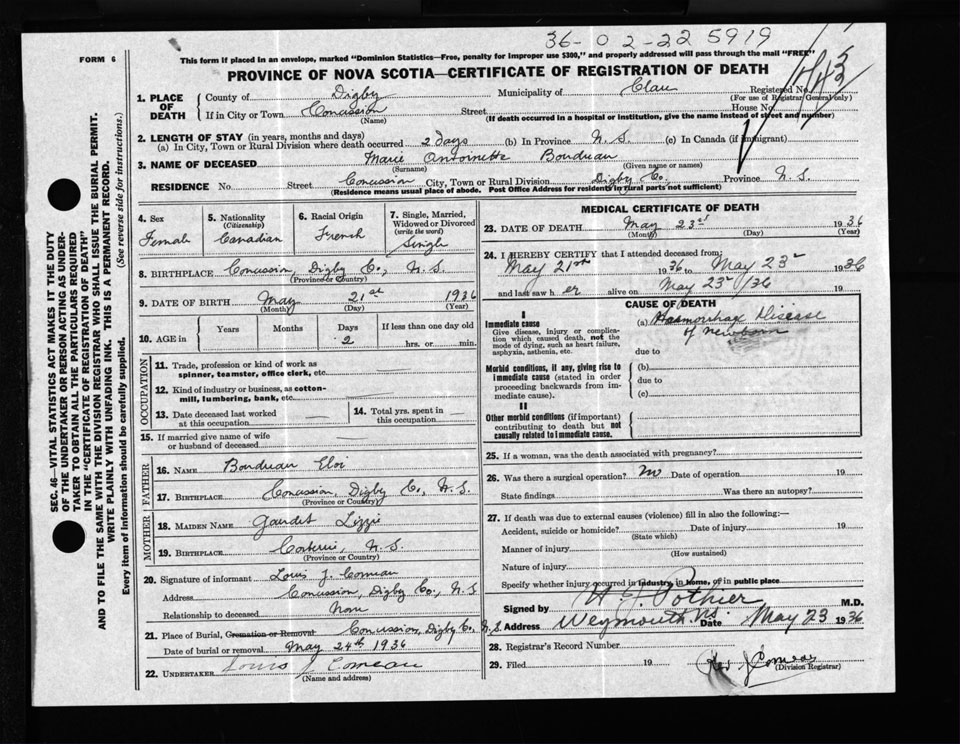 36-02-22 5919
FORM 6
This form if placed in an envelope, marked "Dominion Statistics—Free, penalty for improper use $300," and properly addressed will pass through the mail "FREE"
PROVINCE OF NOVA SCOTIA—CERTIFICATE OF REGISTRATION OF DEATH
1. PLACE OF DEATH
County of Digby Municipality of Clare Registered No.
(For use of Registrar General only)
If in City or Town Concession Street House No.
(Name) (If death occurred in a hospital or institution, give the name instead of street and number)
2. LENGTH OF STAY (in years, months and days)
(a) In City, Town or Rural Division where death occurred 2 days (b) In Province N. S. (c) In Canada (if immigrant)
3. NAME OF DECEASED Marie Antoinette Boudreau
(Surname) (Given name or names)
RESIDENCE No. Street Concession City, Town or Rural Division Digby Co., Province N. S.
(Residence means usual place of abode. Post Office Address for residents in rural parts not sufficient)
4. Sex 5. Nationality 6. Racial Origin 7. Single, Married,
(Citizenship) Widowed or Divorced
(write the word)
Female Canadian French Single
8. BIRTHPLACE Concession, Digby Co., N. S.
(Province or Country)
9. DATE OF BIRTH May 21st 1936
(Month) (Day) (Year)
10. AGE in Years Months Days If less than one day old
2 hrs. or min.
OCCUPATION
11. Trade, profession or kind of work as
spinner, teamster, office clerk, etc.
12. Kind of industry or business, as cotton-
mill, lumbering, bank, etc.
13. Date deceased last worked 14. Total yrs. spent in
at this occupation this occupation
15. If married give name of wife
or husband of deceased
FATHER
16. NAME Boudreau Eloi
17. BIRTHPLACE Concession, Digby Co., N. S.
(Province or Country)
MOTHER
18. MAIDEN NAME Gaudet Lizzie
19. BIRTHPLACE N. S.
(Province or Country)
20. Signature of informant Louis J. Comeau
Address Concession, Digby Co., N. S.
Relationship to deceased None
21. Place of Burial, Cremation or Removal Concession, Digby Co. N. S.
Date of burial or removal May 24th 1936
22. UNDERTAKER Louis J Comeau
(Name and address)
MEDICAL CERTIFICATE OF DEATH
23. DATE OF DEATH May 23rd 1936
(Month) (Day) (Year)
24. I HEREBY CERTIFY that I attended deceased from:
May 21st 1936 to May 23rd 1936
and last saw h er alive on May 23rd /36 19
CAUSE OF DEATH
I
Immediate cause
Give disease, injury or complica-
tion which caused death, not the
mode of dying, such as heart failure,
asphyxia, asthenia, etc.
(a) Disease
of newborn
due to
Morbid conditions, if any, giving rise to
immediate cause (stated in order
proceeding backwards from im-
mediate cause).
(b)
due to
(c)
II
Other morbid conditions (if important)
contributing to death but not
causally related to immediate cause.
25. If a woman, was the death associated with pregnancy?
26. Was there a surgical operation? no Date of operation 19
State findings Was there an autopsy?
27. If death was due to external causes (violence) fill in also the following:—
Accident, suicide or homicide? Date of injury 19
(State which)
Manner of injury
(How sustained)
Nature of injury
Specify whether injury occurred in industry, in home, or in public place
Signed by Pothier M.D.
Address Weymouth NS. Date May 23 1936
28. Registrar's Record Number
29. Filed 19 J Comeau
(Division Registrar)
SEC. 46—VITAL STATISTICS ACT MAKES IT THE DUTY
OF THE UNDERTAKER OR PERSON ACTING AS UNDER-
TAKER TO OBTAIN ALL THE PARTICULARS REQUIRED
IN THE "CERTIFICATE OF REGISTRATION OF DEATH"
AND TO FILE THE SAME WITH THE DIVISION REGISTRAR WHO SHALL ISSUE THE BURIAL PERMIT.
WRITE PLAINLY WITH UNFADING INK. THIS IS A PERMANENT RECORD.
Every item of information should be carefully supplied. (See reverse side for instructions.)